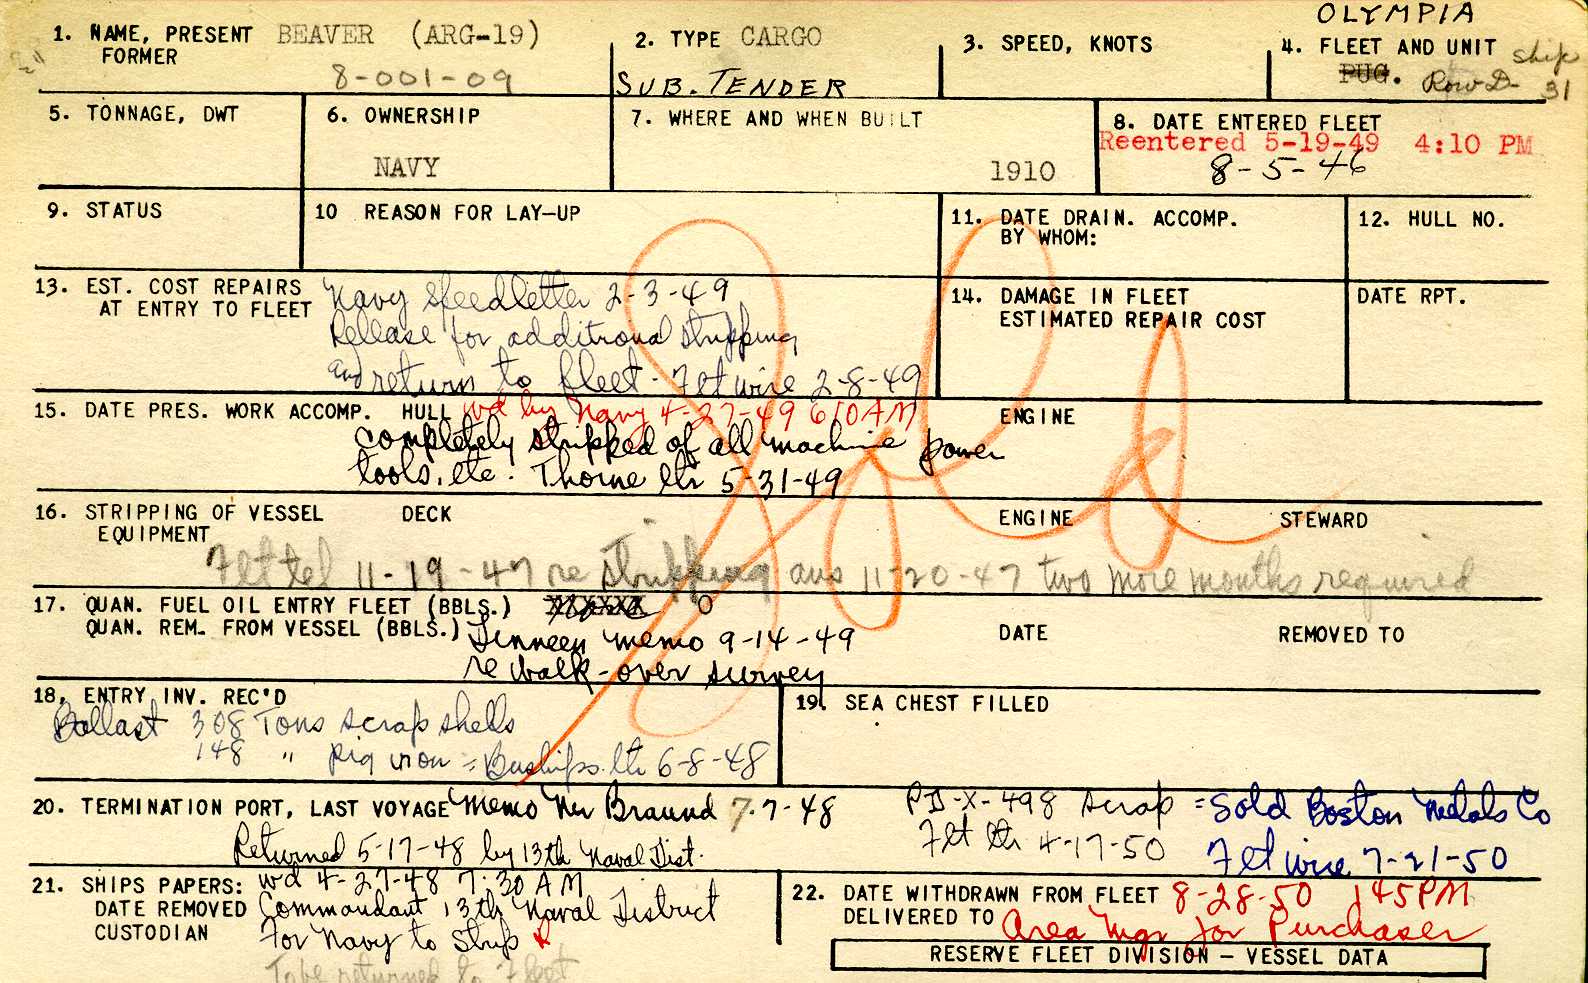 OLYMPIA
1. NAME, PRESENT BEAVER (ARG-19)
FORMER
8-001-09
2. TYPE CARGO
SUB. TENDER
3. SPEED, KNOTS
4. FLEET AND UNIT
PUG. Row D- Ship 31
5. TONNAGE, DWT
6. OWNERSHIP
NAVY
7. WHERE AND WHEN BUILT
1910
8. DATE ENTERED FLEET
Reentered 5-19-49 4:10 PM
8-5-46
9. STATUS
10 REASON FOR LAY-UP
11. DATE DRAIN. ACCOMP.
BY WHOM:
12. HULL NO.
13. EST. COST REPAIRS
AT ENTRY TO FLEET
Navy Speedletter 2-3-49
Release for additional stripping
and return to fleet - Flt wire 2-8-49
14. DAMAGE IN FLEET
ESTIMATED REPAIR COST
DATE RPT.
Sold
15. DATE PRES. WORK ACCOMP. HULL wd by Navy 4-27-49 610 AM
ENGINE
Completely stripped of all machine power
tools, etc. Thorne ltr 5-31-49
16. STRIPPING OF VESSEL DECK ENGINE STEWARD
EQUIPMENT
Flt tel 11-19-47 re stripping ans 11-20-47 two more months required
17. QUAN. FUEL OIL ENTRY FLEET (BBLS.) 0
QUAN. REM. FROM VESSEL (BBLS.) DATE REMOVED TO
memo 9-14-49
re walk-over survey
18. ENTRY INV. REC'D
Ballast 308 Tons scrap shells
148 " pig iron = Buships ltr 6-8-48
19. SEA CHEST FILLED
20. TERMINATION PORT, LAST VOYAGE Memo Mr Braund 7-7-48
Returned 5-17-48 by 13th Naval Dist.
PD-X-498 Scrap = Sold Boston Metals Co
Flt ltr 4-17-50 Flt wire 7-21-50
21. SHIPS PAPERS: wd 4-27-48 7:30 AM
DATE REMOVED Commandant 13th Naval District
CUSTODIAN For Navy to Strip
To be returned to Fleet
22. DATE WITHDRAWN FROM FLEET 8-28-50 145PM
DELIVERED TO Area Mgr for Purchaser
RESERVE FLEET DIVISION - VESSEL DATA